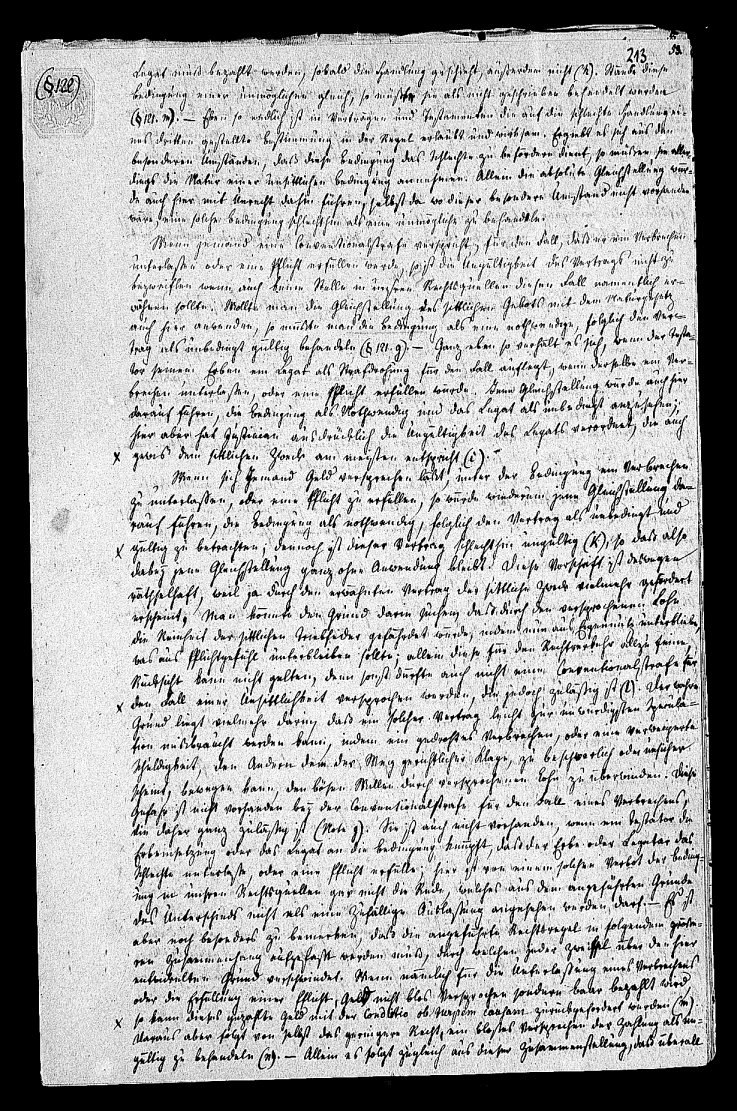 53.
213
(§122)
Legat muß bezahlt werden, sobald die Handlung geschieht, außerdem nicht (h). Stünde diese
Bedingung einer unmöglichen gleich, so müßte sie als nicht geschrieben behandelt werden
(§ 121. n). — Eben so endlich ist in Verträgen und Testamenten die auf die schlechte Handlung ei-
nes Dritten gestellte Bestimmung in der Regel erlaubt und wirksam. Ergiebt es sich aus den
besonderen Umständen, daß diese Bedingung das Schlechte zu befördern dient, so müssen sie aller-
dings die Natur einer unsittlichen Bedingung annehmen. Allein die absolute Gleichstellung wür-
de auch hier mit Unrecht dahin führen, selbst da wo dieser besondere Umstand nicht vorhanden
wäre, eine solche Bedingung schlechthin als eine unmögliche zu behandeln.
Wenn jemand eine Conventionalstrafe verspricht, für den Fall, daß er ein Verbrechen
unterlassen oder eine Pflicht erfüllen werde, so ist die Ungültigkeit des Vertrags nicht zu
bezweifeln wenn auch keine Stelle in unsren Rechtsquellen diesen Fall namentlich er-
wähnen sollte. Wollte man die Gleichstellung des sittlichen Gebots mit dem Naturgesetz
auch hier anwenden, so müßte man die Bedingung als eine nothwendige, folglich den Ver-
trag als unbedingt gültig behandeln (§ 121. g). — Ganz eben so verhält es sich, wenn der Testa-
tor seinen Erben ein Legat als Strafdrohung für den Fall auflegt, wenn derselbe ein Ver-
brechen unterlassen, oder eine Pflicht erfüllen würde. Jene Gleichstellung würde auch hier
darauf führen, die Bedingung als nothwendig und das Legat als unbedingt anzusehen;
hier aber hat Justinian ausdrücklich die Ungültigkeit des Legats verordnet, die auch
gewis dem sittlichen Zweck am meisten entspricht (i). —
Wenn sich jemand Geld versprechen läßt, unter der Bedingung ein Verbrechen
zu unterlassen, oder eine Pflicht zu erfüllen, so würde wiederum jene Gleichstellung da-
rauf führen, die Bedingung als nothwendig, folglich den Vertrag als unbedingt und
gültig zu betrachten; dennoch ist dieser Vertrag schlechthin ungültig (k), so daß also
dabey jene Gleichstellung ganz ohne Anwendung bleibt. Diese Vorschrift ist deswegen
räthselhaft, weil ja durch den erwähnten Vertrag der sittliche Zweck vielmehr gefördert
erscheint. Man könnte den Grund darin suchen, daß durch den versprochenen Lohn
die Reinheit der sittlichen Triebfeder gefährdet würde, indem nun aus Eigennutz unterbliebe,
was aus Pflichtgefühl unterbleiben sollte: allein diese für den Rechtsverkehr allzu feine
Rücksicht kann nicht gelten, denn sonst dürfte auch nicht eine Conventionalstrafe für
den Fall einer Unsittlichkeit versprochen werden, die jedoch zulässig ist (l). Der wahre
Grund liegt vielmehr darin, daß ein solcher Vertrag leicht zur unwürdigsten Specula-
tion misbraucht werden kann, indem ein gedrohtes Verbrechen, oder eine verweigerte
Schuldigkeit, den Andern dem der Weg gerichtlicher Klage, zu beschwerlich oder unsicher
scheint, bewegen kann, den bösen Willen durch versprochenen Lohn zu überwinden. Diese
Gefahr ist nicht vorhanden bey der Conventionalstrafe für den Fall eines Verbrechens,
die daher ganz zulässig ist (Note g). Sie ist auch nicht vorhanden, wenn ein Testator die
Erbeinsetzung oder das Legat an die Bedingung knüpft, daß der Erbe oder Legatar das
Schlechte unterlasse, oder eine Pflicht erfülle; hier ist von einem solchen Verbot der Beding-
ung in unsren Rechtsquellen gar nicht die Rede, welches aus dem angeführten Grunde
des Unterschieds nicht als eine zufällige Auslassung angesehen werden darf. — Es ist
aber noch besonders zu bemerken, daß die angeführte Rechtsregel in folgendem größe-
ren Zusammenhang aufgefaßt werden muß, durch welchen jeder Zweifel über den hier
entwickelten Grund verschwindet. Wenn nämlich für die Unterlassung eines Verbrechens
oder die Erfüllung einer Pflicht, Geld nicht blos versprochen sondern baar bezahlt wird,
so kann dieses gezahlte Geld mit der Condictio ob turpem causam zurückgefordert werden (m).
Daraus aber folgt von selbst das geringere Recht, ein bloßes Versprechen der Zahlung als un-
gültig zu behandeln (n). — Allein es folgt zugleich aus dieser Zusammenstellung, daß überall